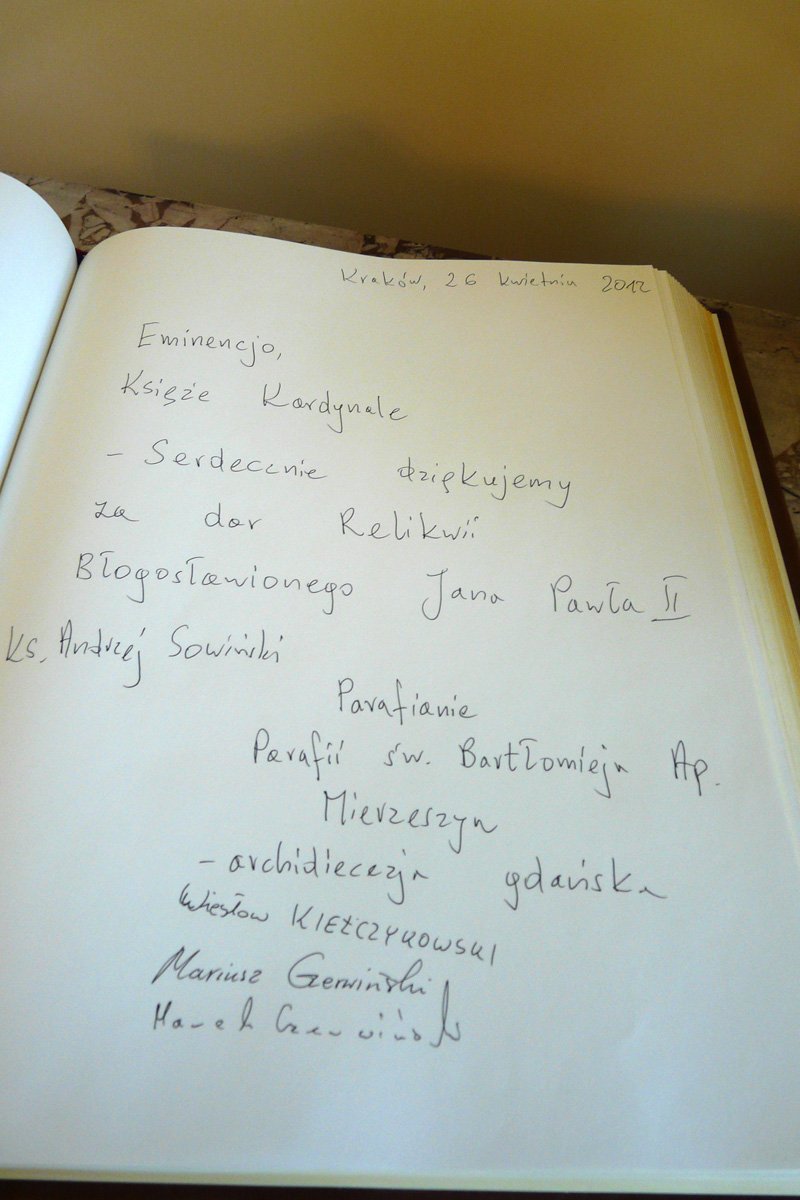 Kraków, 26 kwietnia 2012
Eminencjo,
Księże Kardynale
- Serdecznie dziękujemy
za dar Relikwii
Błogosławionego Jana Pawła II
Ks. Andrzej Sowiński
Parafianie
Parafii św. Bartłomieja Ap.
Mierzeszyn
- archidiecezja gdańska
Wiesław KIEŁCZYKOWSKI
Mariusz Gerwiński
Marek